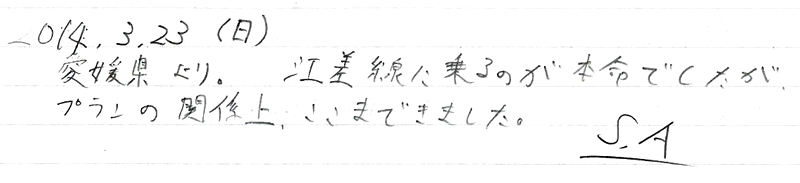 2014.3.23 (日)
愛媛県より。 江差線に乗るのが本命でしたが、
プランの関係上、ここまできました。
S.A